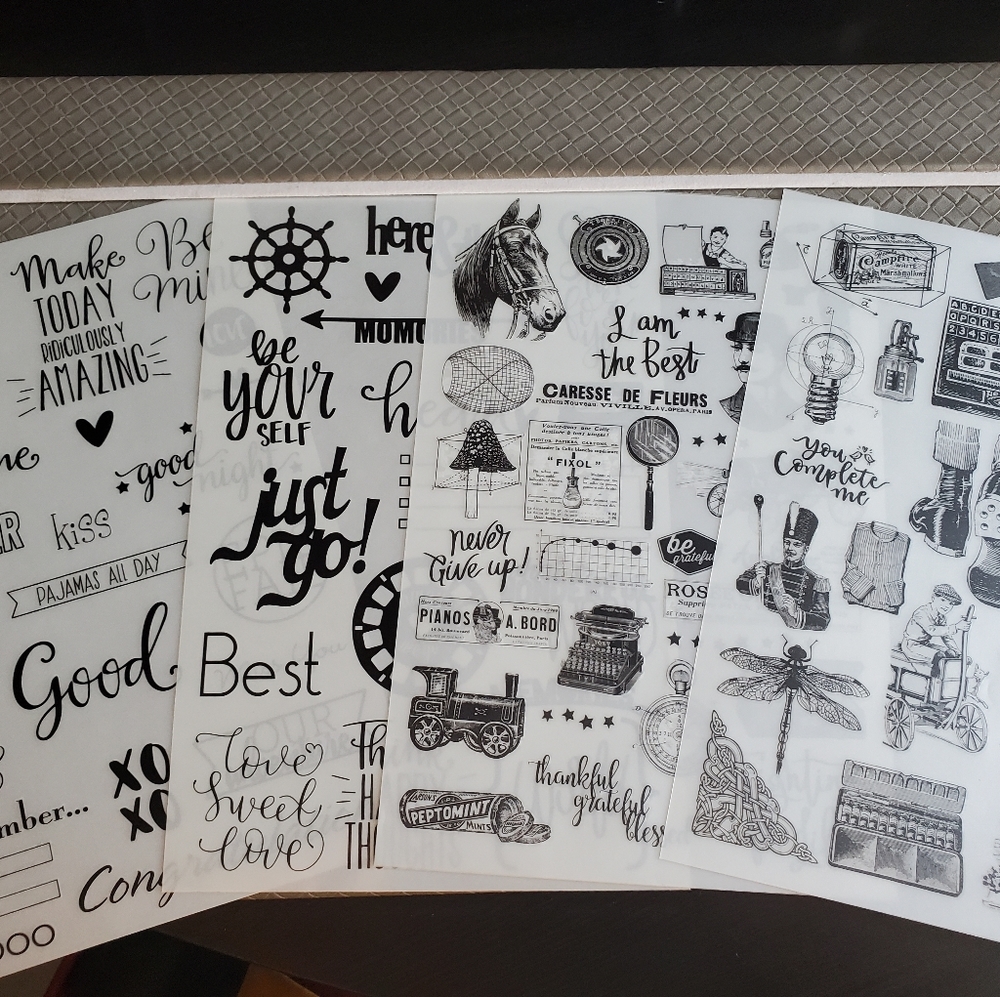 Make
TODAY
RIDICULOUSLY
AMAZING
Be
Mine
me
good
night
kiss
PAJAMAS ALL DAY
Good
XO
XO
mber...
Cong
here
MOMO
be
YOUR
SELF
h
just
go!
Best
love
Sweet
love
TH
H
THOUGHTS
I am
the Best
CARESSE DE FLEURS
Parfum Nouveau VIVILLE, AV. OPERA, PARIS
"FIXOL"
never
Give up!
be
grateful
ROS
PIANOS A. BORD
thankful
grateful
bless
PEPTOMINT
MINTS
Campfire
Campfire
WHITE
Marshmallows
You
Complete
me